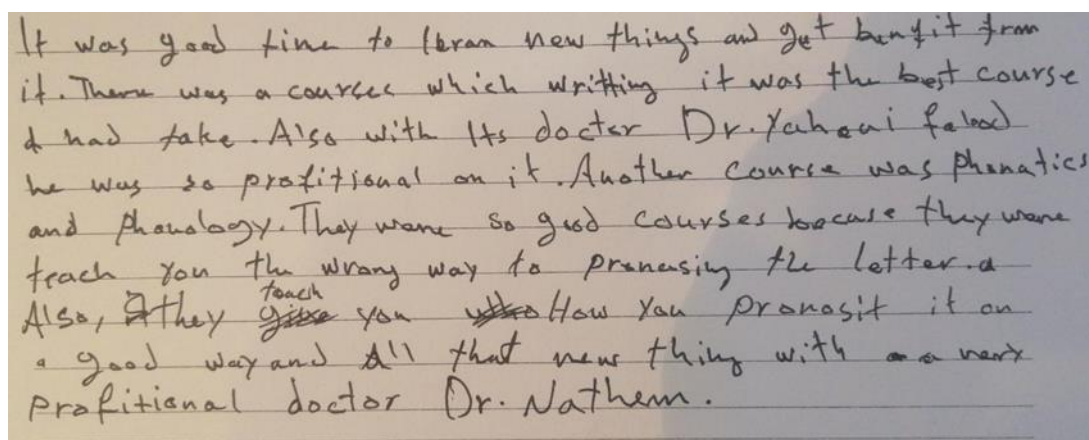 It was good time to lbran new things and get benyfit from
it. There was a courses which writting it was the best course
I had take. Also with Its doctor Dr. Yaheai
he was so profitional on it. Another course was phonatics
and phonology. They wane so good courses becase they wane
teach you the wrong way to pronousing the letter.a
Also, they teach you How you pronosit it on
a good way and All that new thing with a very
profitional doctor Dr. Nathem.